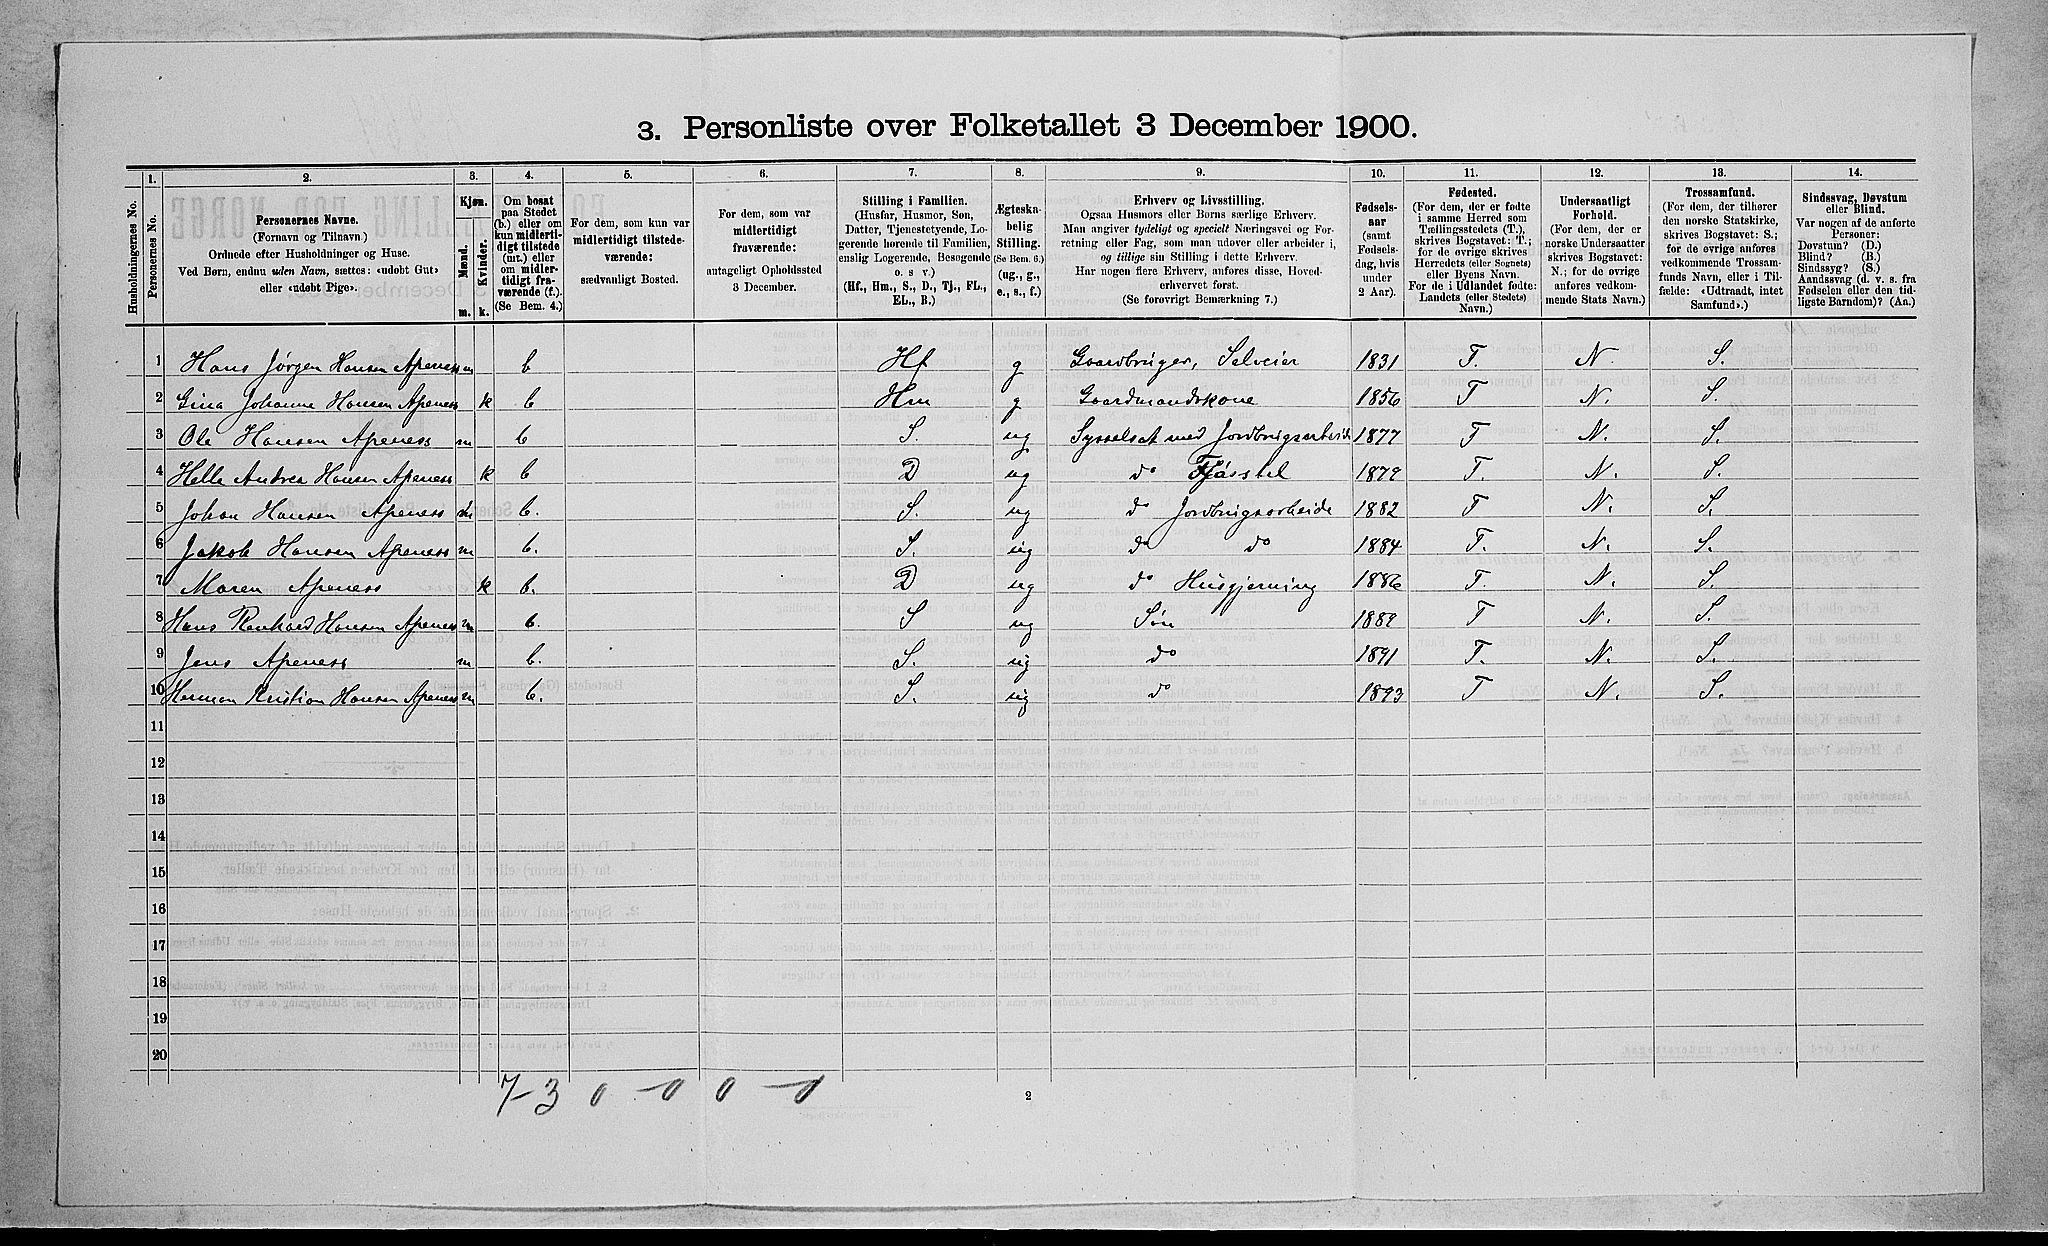 3. Personliste over Folketallet 3 December 1900.
1. 2. 3. 4. 5. 6. 7. 8. 9. 10. 11. 12. 13. 14.
Husholdningernes No.
Personernes No.
Personernes Navne.
(Fornavn og Tilnavn)
Ordnede efter Husholdninger og Huse.
Ved Børn, endnu uden Navn, sættes: «udøbt Gut»
eller «udøbt Pige».
Kjøn.
Mænd.
Kvinder.
m. k.
Om bosat
paa Stedet
(b.) eller om
kun midlerti-
digt tilstede
(mt.) eller
om midler-
tidigt fra-
værende (f.).
(Se Bem. 4.)
For dem, som kun var
midlertidigt tilstede-
værende:
sædvanligt Bosted.
For dem, som var
midlertidigt
fraværende:
antageligt Opholdssted
3 December.
Stilling i Familien.
(Husfar, Husmor, Søn,
Datter, Tjenestetyende, Lo-
gerende hørende til Familien,
enslig Logerende, Besøgende
o. s v.)
(Hf., Hm., S., D., Tj., FL.,
EL., B.)
Ægteska-
belig
Stilling.
(Se Bem. 6.)
(ug., g.,
e., s., f.)
Erhverv og Livsstilling.
Ogsaa Husmors eller Børns særlige Erhverv.
Man angiver tydeligt og specielt Næringsvei og For-
retning eller Fag, som man udøver eller arbeider i,
og tillige sin Stilling i dette Erhverv.
Har nogen flere Erhverv, anføres disse, Hoved-
erhvervet først.
(Se forøvrigt Bemærkning 7.)
Fødsels-
aar
(samt
Fødsels-
dag, hvis
under
2 Aar).
Fødested.
(For dem, der er fødte
i samme Herred som
Tællingsstedets (T.),
skrives Bogstavet: T.;
for de øvrige skrives
Herredets (eller Sognets)
eller Byens Navn.
For de i Udlandet fødte:
Landets (eller Stedets)
Navn.)
Undersaatligt
Forhold.
(For dem, der er
norske Undersaatter
skrives Bogstavet:
N.; for de øvrige
anføres vedkom-
mende Stats Navn.)
Trossamfund.
(For dem, der tilhører
den norske Statskirke,
skrives Bogstavet: S.;
for de øvrige anføres
vedkommende Trossam-
funds Navn, eller i Til-
fælde: «Udtraadt, intet
Samfund».)
Sindssvag, Døvstum
eller Blind.
Var nogen af de anførte
Personer:
Døvstum? (D.)
Blind? (B.)
Sindssyg? (S.)
Aandssvag (d. v. s. fra
Fødselen eller den tid-
ligste Barndom)? (Aa.)
1 Hans Jørgen Hansen Apeness m b Hf g Gaardbruger, Selveier 1831 T. N. S.
2 Gina Johanne Hansen Apeness k b Hm g Gaardmandskone 1856 T N. S.
3 Ole Hansen Apeness m b S. ug Sysselsat med Jordbrugsarbeide 1877 T N. S.
4 Helle Andrea Hansen Apeness k b D ug do Fjøsstel 1879 T. N. S.
5 Johan Hansen Apeness m b. S. ug do Jordbrugsarbeide 1882 T N. S.
6 Jakob Hansen Apeness m b. S. ug do do 1884 T. N. S.
7 Maren Apeness k b. D ug do Husgjerning 1886 T. N. S.
8 Hans Renhard Hansen Apeness m b. S ug Søn 1889 T N. S.
9 Jens Apeness m b. S. ug do 1891 T. N. S.
10 Herman Kristian Hansen Apeness m b. S. ug do 1893 T N. S.
11
12
13
14
15
16
17
18
19
20
7-3 0 - 0 0 - 0
2